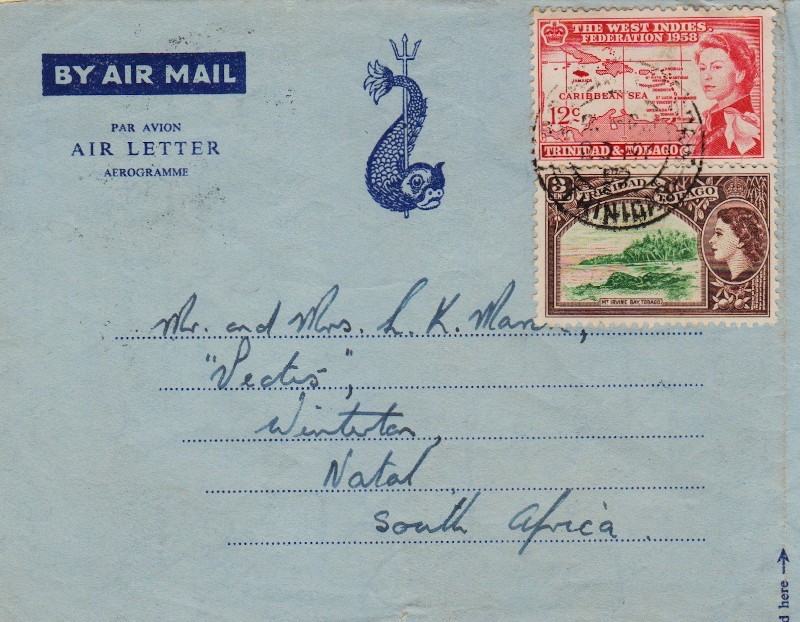 BY AIR MAIL
PAR AVION
AIR LETTER
AEROGRAMME
THE WEST INDIES
FEDERATION 1958
JAMAICA
CARIBBEAN SEA
12c
TRINIDAD & TOBAGO
TRINIDAD TOBAGO
MT IRVINE BAY, TOBAGO
Mr. and Mrs. L. K.
"Vectis",
Winterton,
Natal
South Africa.
d here